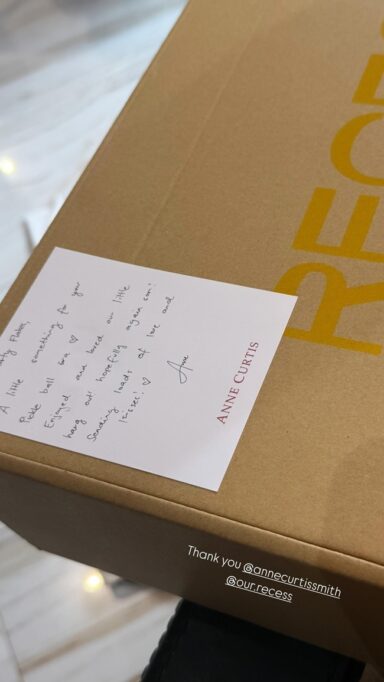 RECE
A little something for your
Pickle ball era ♡
Enjoyed and loved our little
hang out hopefully again soon!
Sending loads of love and
kisses! ♡
Anne
ANNE CURTIS
Thank you @annecurtissmith
@our.recess